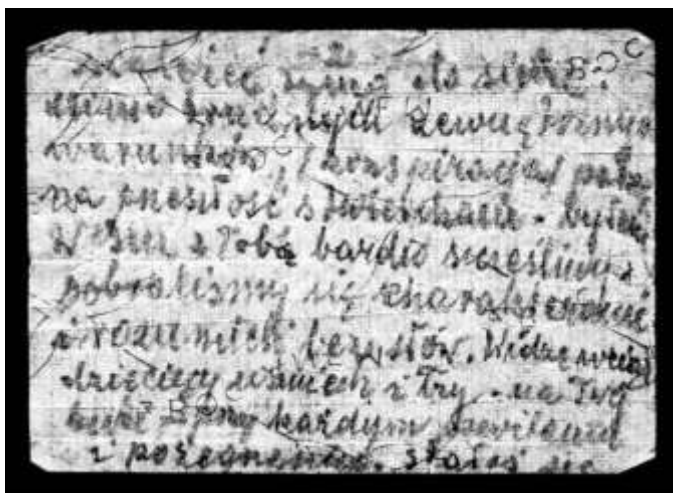 2
do siebie.
mimo trudnych zewnętrznych
warunków, / konspiracja/ patrząc
na przeszłość stwierdzam - byłem
z Tobą bardzo szczęśliwy
dobraliśmy się charakterami
i rozumieli bez słów. Widzę wciąż
dziecięcy uśmiech i łzy - na Twej
przy każdym powitaniu
i pożegnaniu. Stałaś się